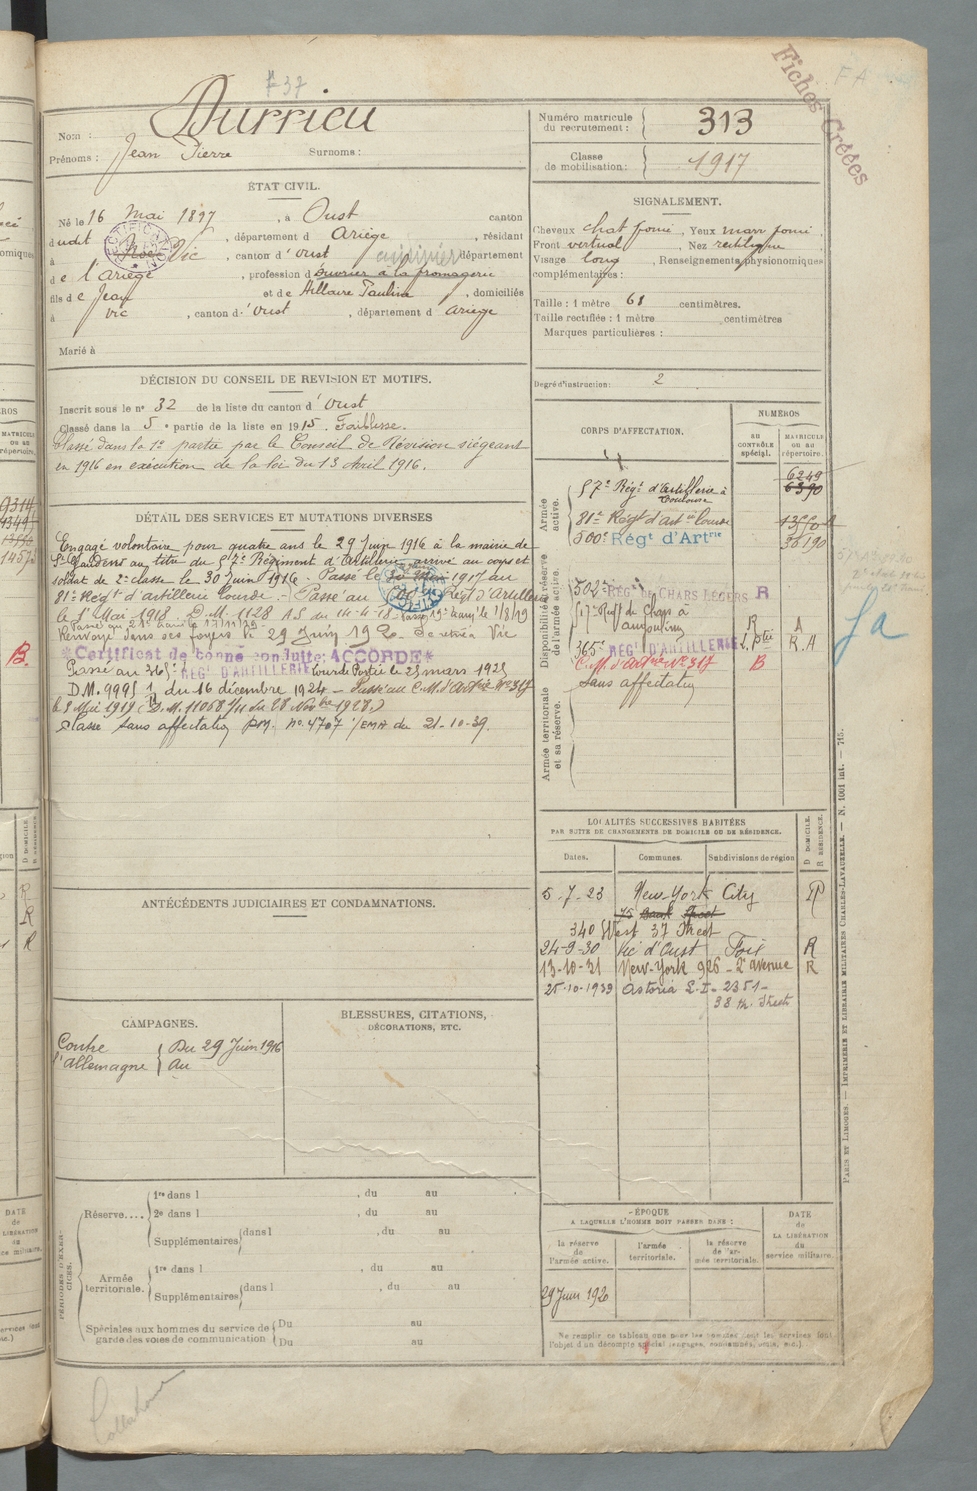 F 37
Fiches Créées
F A
Nom : Durrieu
Prénoms : Jean Pierre Surnoms :
Numéro matricule du recrutement : 313
Classe de mobilisation : 1917
ÉTAT CIVIL.
Né le 16 Mai 1897, à Oust canton
dudit, département d Ariège, résidant
à Vic, canton d'Oust cuisinier département
de l'Ariège, profession d ouvrier à la fromagerie
fils de Jean et de Hillaire Pauline, domiciliés
à Vic, canton d'Oust, département d Ariège
Marié à
SIGNALEMENT.
Cheveux chat foncé, Yeux marr foncé,
Front vertical, Nez rectiligne
Visage long, Renseignements physionomiques
complémentaires :
Taille : 1 mètre 61 centimètres.
Taille rectifiée : 1 mètre centimètres
Marques particulières :
Degré d'instruction : 2
DÉCISION DU CONSEIL DE REVISION ET MOTIFS.
Inscrit sous le n° 32 de la liste du canton d'Oust
Classé dans la 5e partie de la liste en 1915. Faiblesse.
Classé dans la 1e partie par le Conseil de Révision siégeant
en 1916 en exécution de la loi du 13 Avril 1916.
DÉTAIL DES SERVICES ET MUTATIONS DIVERSES
Engagé volontaire pour quatre ans le 29 Juin 1916 à la mairie de
St Gaudens au titre du 57e Régiment d'Artillerie arrivé au corps et
soldat de 2e classe le 30 Juin 1916. Passé le 1917 au
81e Régt d'artillerie lourde. Passé au 500e Régt d'Artillerie
le 1er Mai 1918 D.M. 1128 AS du 14-4-18.
Renvoyé dans ses foyers le 29 Juin 1920 Se retire à Vic
*Certificat de bonne conduite ACCORDÉ*
Passé au 365e RÉGt D'ARTILLERIE Lourde Portée le 25 mars 1925
D.M. 9995 1/11 du 16 décembre 1924 – Passé au C.M. d'Artie N° 317
le 8 Mai 1929 (D.M. 11068 du 28 Novbre 1928)
Classé sans affectation DM. no. 4707 /EMA du 21-10-39.
CORPS D'AFFECTATION.
NUMÉROS
AU CONTRÔLE spécial.
MATRICULE OU AU répertoire.
Armée active.
57e Régt d'Artillerie à Toulouse 6249 6390
81e Régt d'artie lourde
500e Régt d'Artrie 36190
Disponibilité et réserve de l'armée active.
502e RÉGt DE CHARS LÉGERS R
517e Regt de Chars à R A
365e RÉGt D'ARTILLERIE L. Ptée R.A
C.M. d'Artrie N° 317 B
Sans affectation
Armée territoriale et sa réserve.
fa
LOCALITÉS SUCCESSIVES HABITÉES
PAR SUITE DE CHANGEMENTS DE DOMICILE OU DE RÉSIDENCE.
D DOMICILE. R RÉSIDENCE.
Dates. Communes. Subdivisions de région
5-7-23 New-York City
75 Bank Street
340 West 37 Street
24-9-30 Vic d'Oust Foix R
13-10-31 New-York 926 - 2e avenue R
25-10-1933 Astoria L-I- 2351-
33 th. Street
ANTÉCÉDENTS JUDICIAIRES ET CONDAMNATIONS.
CAMPAGNES.
Contre l'allemagne { Du 29 Juin 1916
Au
BLESSURES, CITATIONS, DÉCORATIONS, ETC.
PÉRIODES D'EXERCICES.
Réserve....
1re dans l , du au
2e dans l , du au
Supplémentaires dans l , du au
Armée territoriale.
1re dans l , du au
Supplémentaires dans l , du au
Spéciales aux hommes du service de garde des voies de communication
Du au
Du au
ÉPOQUE
A LAQUELLE L'HOMME DOIT PASSER DANS :
la réserve de l'armée active.
l'armée territoriale.
la réserve de l'armée territoriale.
DATE de LA LIBÉRATION du service militaire.
29 Juin 1920
Ne remplir ce tableau que pour les hommes dont les services font
l'objet d'un décompte spécial (engagés, condamnés, omis, etc.).
PARIS ET LIMOGES. — IMPRIMERIE ET LIBRAIRIE MILITAIRES CHARLES-LAVAUZELLE. — N. 1001 int. — 715.